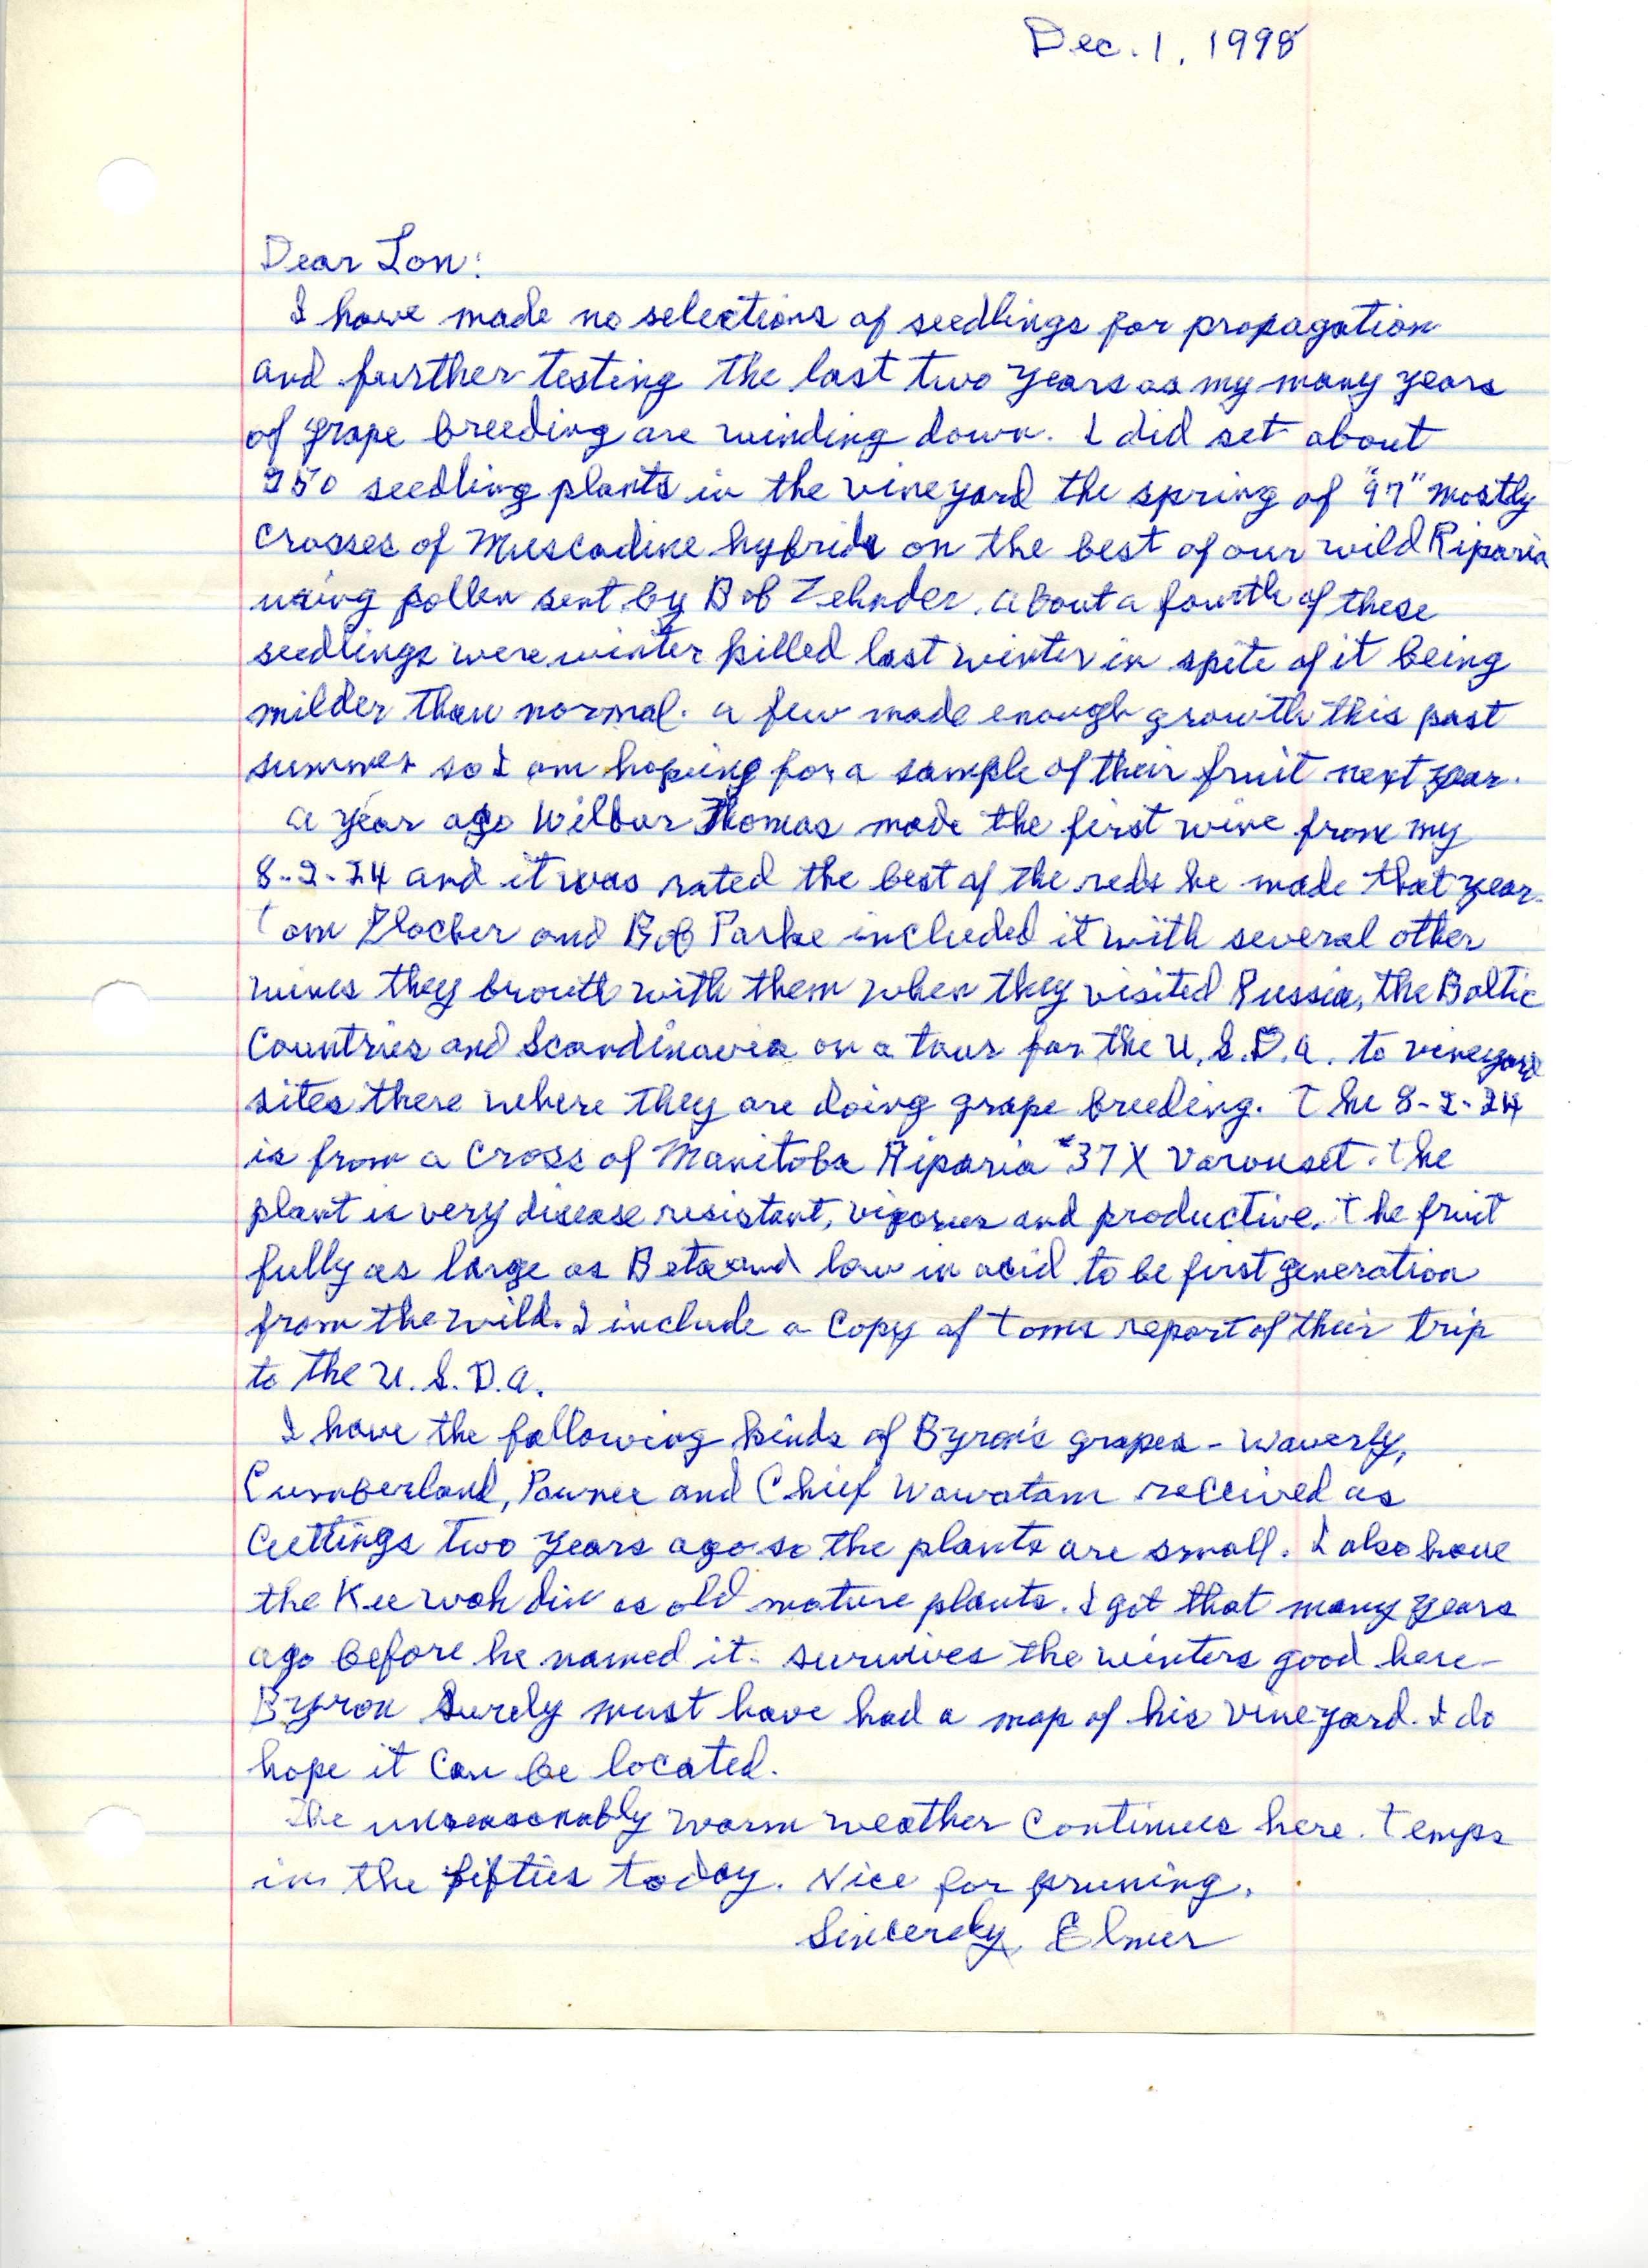 Dec. 1, 1998
Dear Lon:
I have made no selections of seedlings for propagation
and further testing the last two years as my many years
of grape breeding are winding down. I did set about
250 seedling plants in the vineyard the spring of "97" mostly
crosses of Muscadine hybrids on the best of our wild Riparia
using pollen sent by Bob Zehnder. About a fourth of these
seedlings were winter killed last winter in spite of it being
milder than normal. A few made enough growth this past
summer so I am hoping for a sample of their fruit next year.
A year ago Wilbur Thomas made the first wine from my
8-2-24 and it was rated the best of the reds he made that year.
Tom Plocher and Bob Parke included it with several other
wines they brouth with them when they visited Russia, the Baltic
Countries and Scandinavia on a tour for the U.S.D.A. to vineyard
sites there where they are doing grape breeding. The 8-2-24
is from a cross of Manitoba Riparia #37 X Varouset. The
plant is very disease resistant, vigorus and productive. The fruit
fully as large as Beta and low in acid to be first generation
from the wild. I include a copy of Toms report of their trip
to the U.S.D.A.
I have the following kinds of Byron's grapes - Waverly,
Cumberland, Pawnee and Chief Wawatam received as
cuttings two years ago so the plants are small. I also have
the Kee wah din as old mature plants. I got that many years
ago before he named it. Survives the winters good here.
Byron surely must have had a map of his vineyard. I do
hope it can be located.
The unseasonably warm weather continues here. Temps
in the fifties today. Nice for pruning.
Sincerely, Elmer